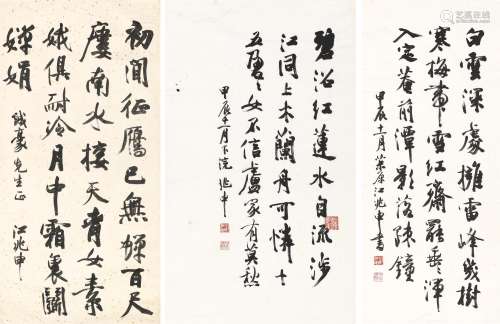 初聞征鴈已無蟬百尺
樓南水接天青女素
娥俱耐冷月中霜裏鬪
嬋娟
豪先生正 江兆申
碧沼紅蓮水自流涉
江同上木蘭舟可憐十
五盈〻女不信盧家有莫愁
甲辰十一月下浣 兆申
白雲深處擁雷峰幾樹
寒梅帶雪紅齋罷垂〻渾
入定菴前潭影落疎鐘
甲辰十一月 江兆申書